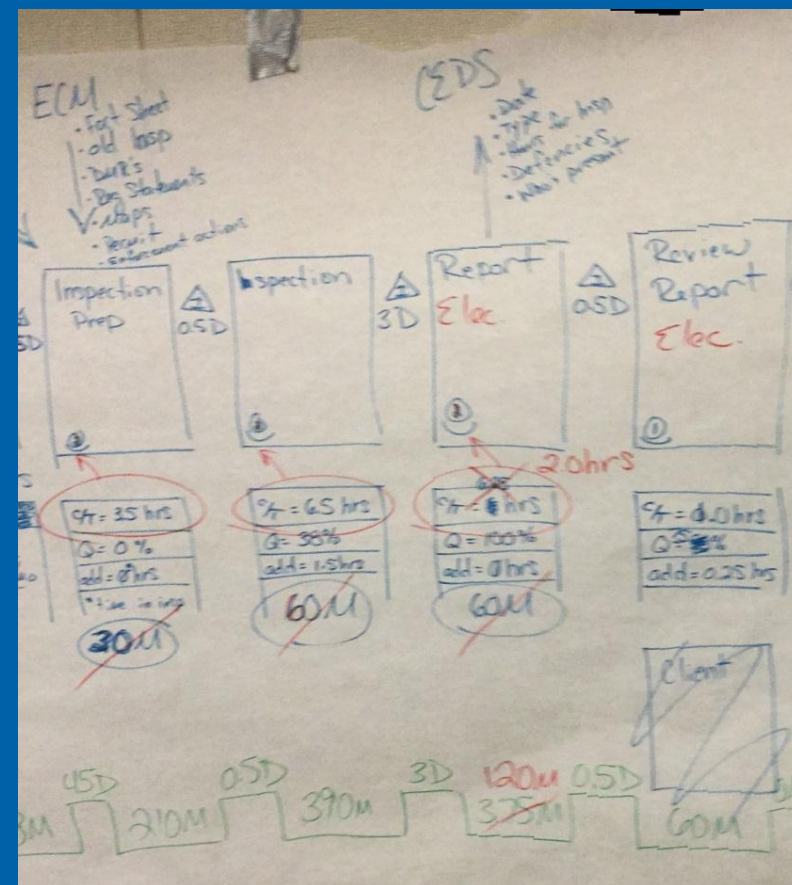 ECM
• Fact Sheet
• old Insp
• DMR's
• Reg Statements
• Maps
• Permit
• Enforcement actions
CEDS
• Date
• Type
• Hours for Insp
• Defencies
• Who's present
5D
Inspection
Prep
0.5D
Inspection
3D
Report
Elec.
0.5D
Review
Report
Elec.
①
2.0hrs
C/T = 3.5 hrs
Q = 0%
add = 0hrs
30M
C/T = 6.5 hrs
Q = 38%
add = 1.5hrs
60M
C/T = hrs
Q = 100%
add = 0hrs
60M
C/T = 1.0hrs
Q = %
add = 0.25 hrs
Client
3M
45D
210M
0.5D
390M
3D
120M
375M
0.5D
60M